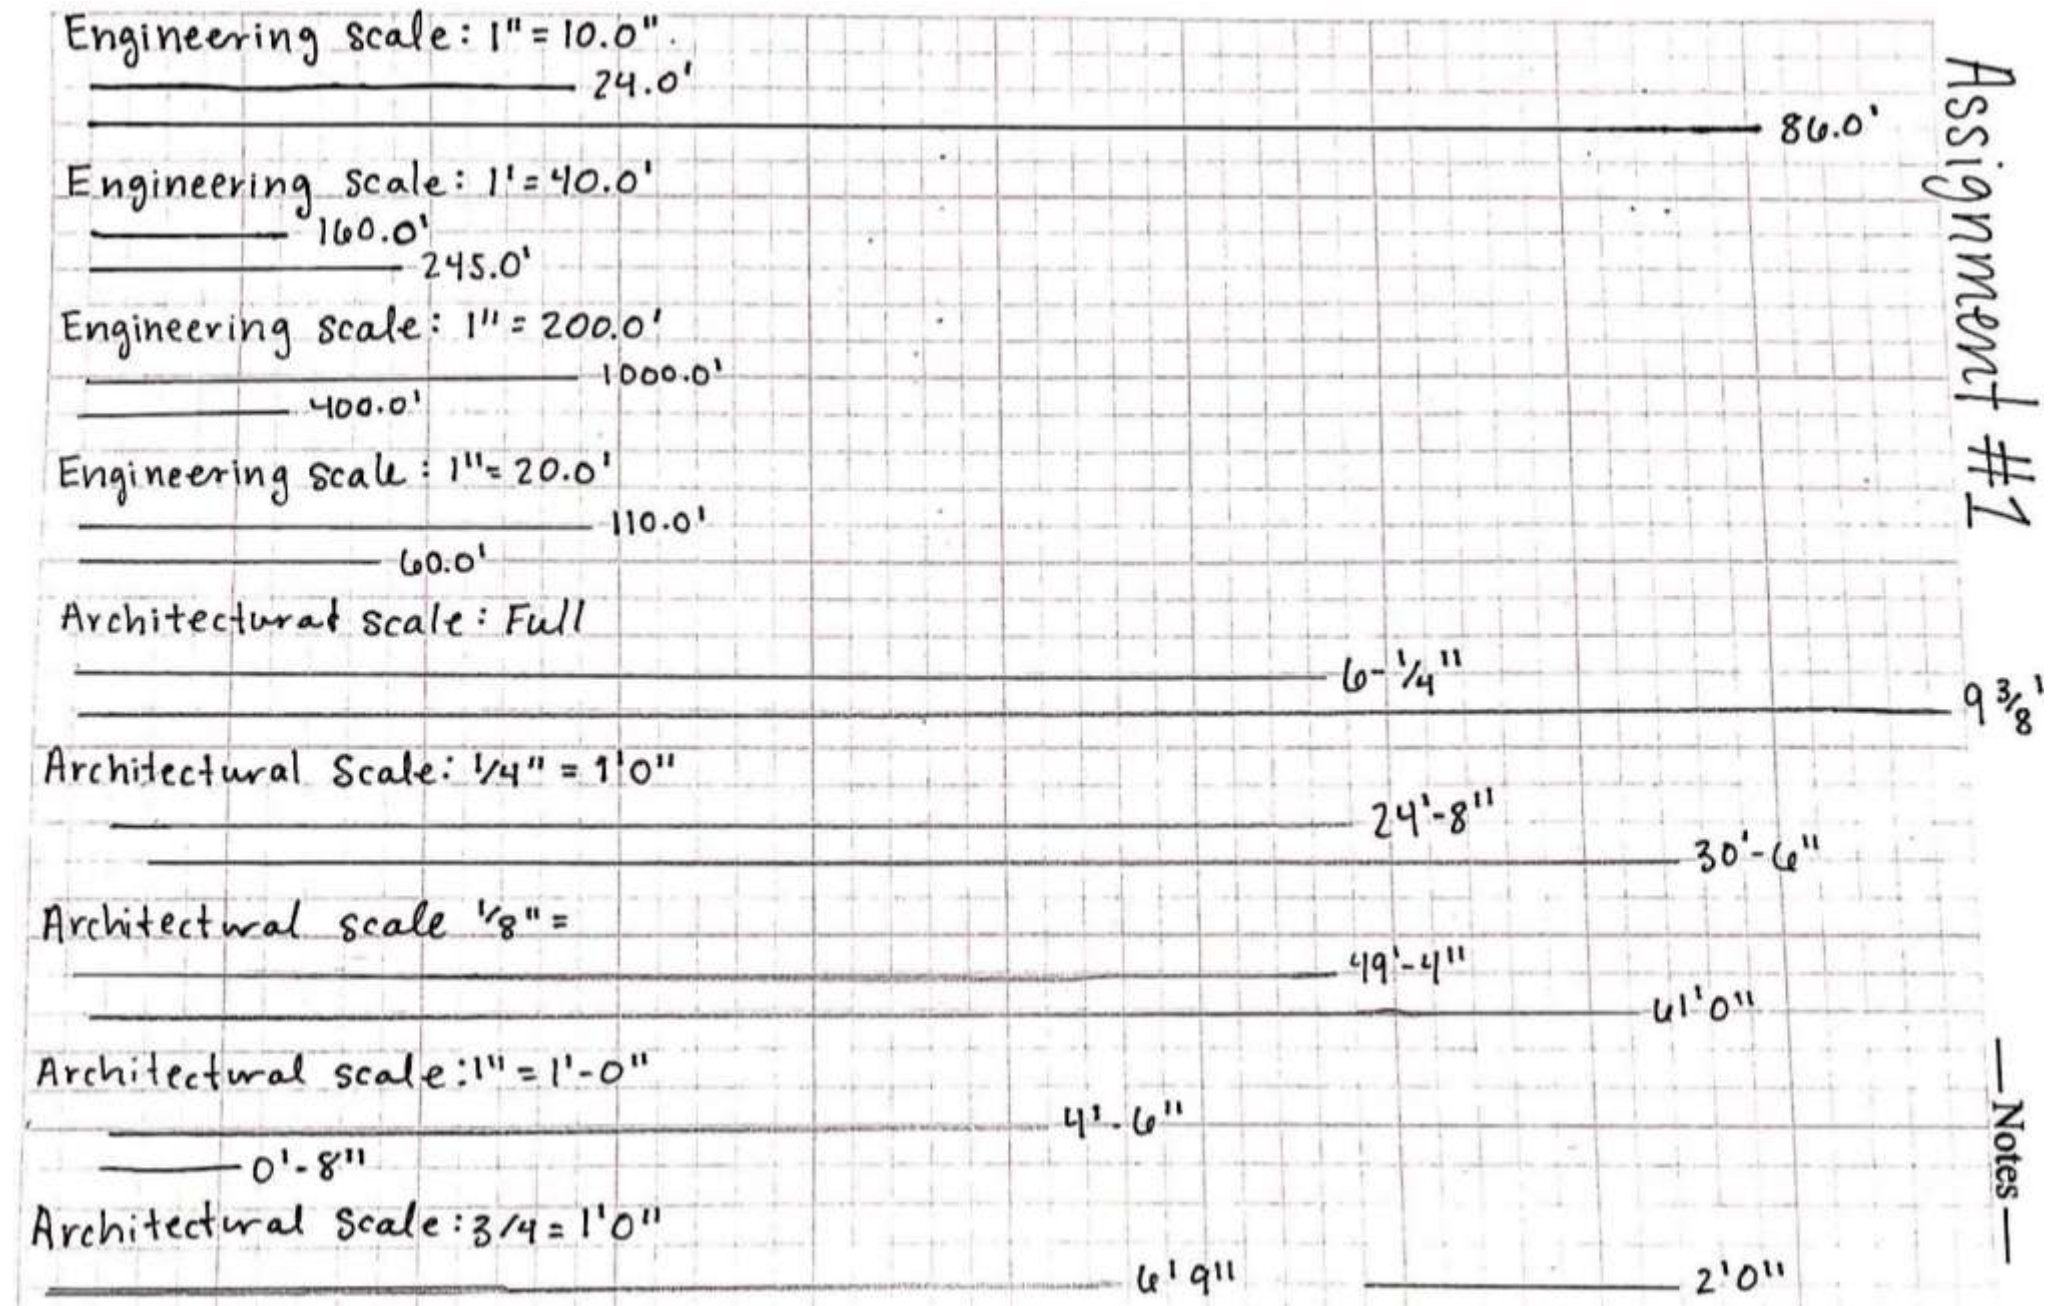 Engineering scale: 1" = 10.0".
24.0'
86.0'
Engineering scale: 1' = 40.0'
160.0'
245.0'
Engineering scale: 1" = 200.0'
1000.0'
400.0'
Engineering scale: 1" = 20.0'
110.0'
60.0'
Architectural scale: Full
6-1/4"
9 3/8'
Architectural Scale: 1/4" = 1'0"
24'-8"
30'-6"
Architectural scale 1/8" =
49'-4"
61'0"
Architectural scale: 1" = 1'-0"
4'-6"
0'-8"
Architectural Scale: 3/4 = 1'0"
6'9" 2'0"
Assignment #1
—Notes—